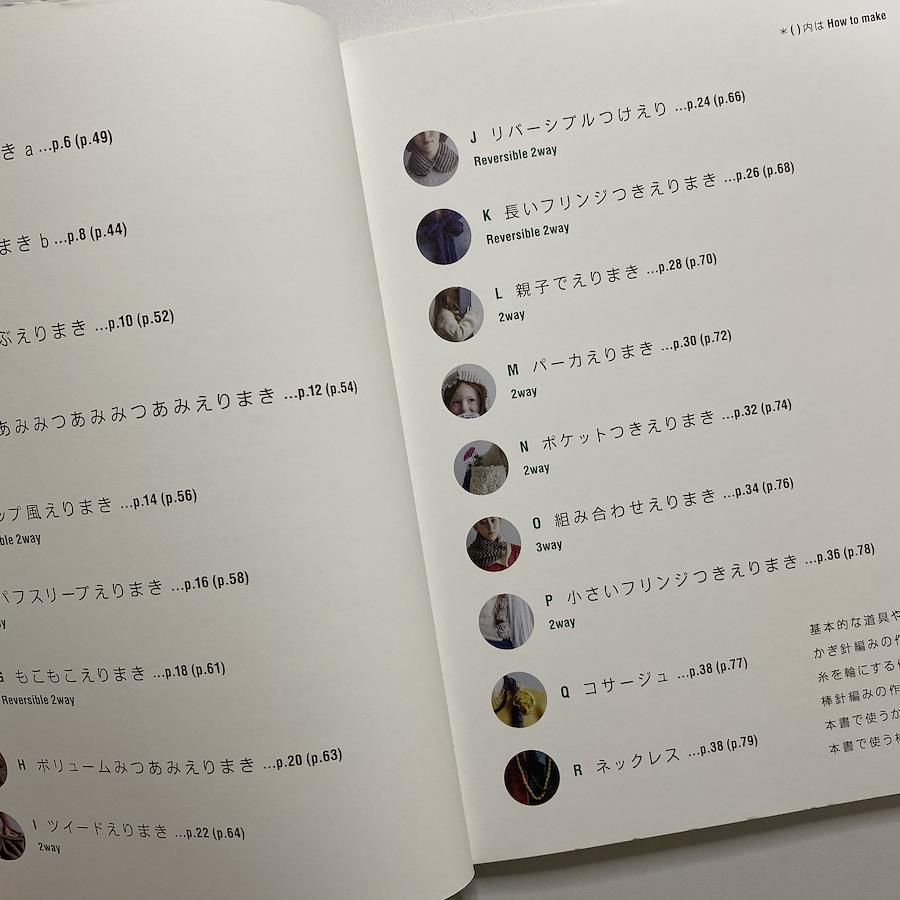 き a ...p.6 (p.49)
まき b ...p.8 (p.44)
ぶえりまき ...p.10 (p.52)
あみみつあみみつあみえりまき ...p.12 (p.54)
ップ風えりまき ...p.14 (p.56)
ble 2way
パフスリーブえりまき ...p.16 (p.58)
G もこもこえりまき ...p.18 (p.61)
Reversible 2way
H ボリュームみつあみえりまき ...p.20 (p.63)
I ツイードえりまき ...p.22 (p.64)
2way
＊( )内は How to make
J リバーシブルつけえり ...p.24 (p.66)
Reversible 2way
K 長いフリンジつきえりまき ...p.26 (p.68)
Reversible 2way
L 親子でえりまき ...p.28 (p.70)
2way
M パーカえりまき ...p.30 (p.72)
2way
N ポケットつきえりまき ...p.32 (p.74)
2way
O 組み合わせえりまき ...p.34 (p.76)
3way
P 小さいフリンジつきえりまき ...p.36 (p.78)
2way
Q コサージュ ...p.38 (p.77)
R ネックレス ...p.38 (p.79)
基本的な道具や
かぎ針編みの作
糸を輪にする
棒針編みの作
本書で使うか
本書で使う